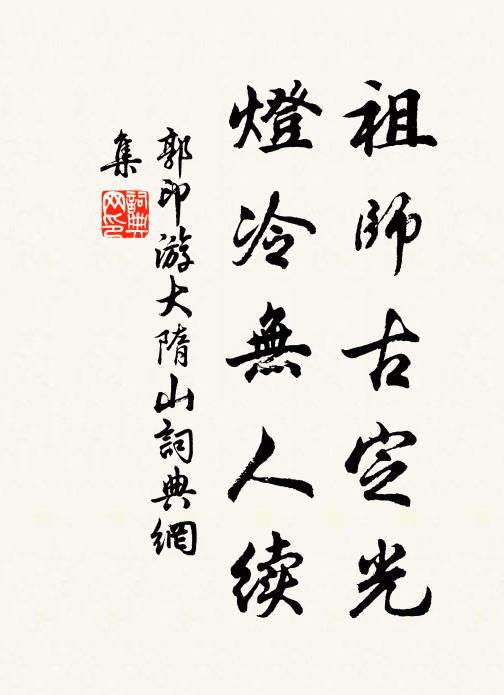 祖師古定光
燈冷無人续
郭印游大隋山詞典網
集
詞典
网印